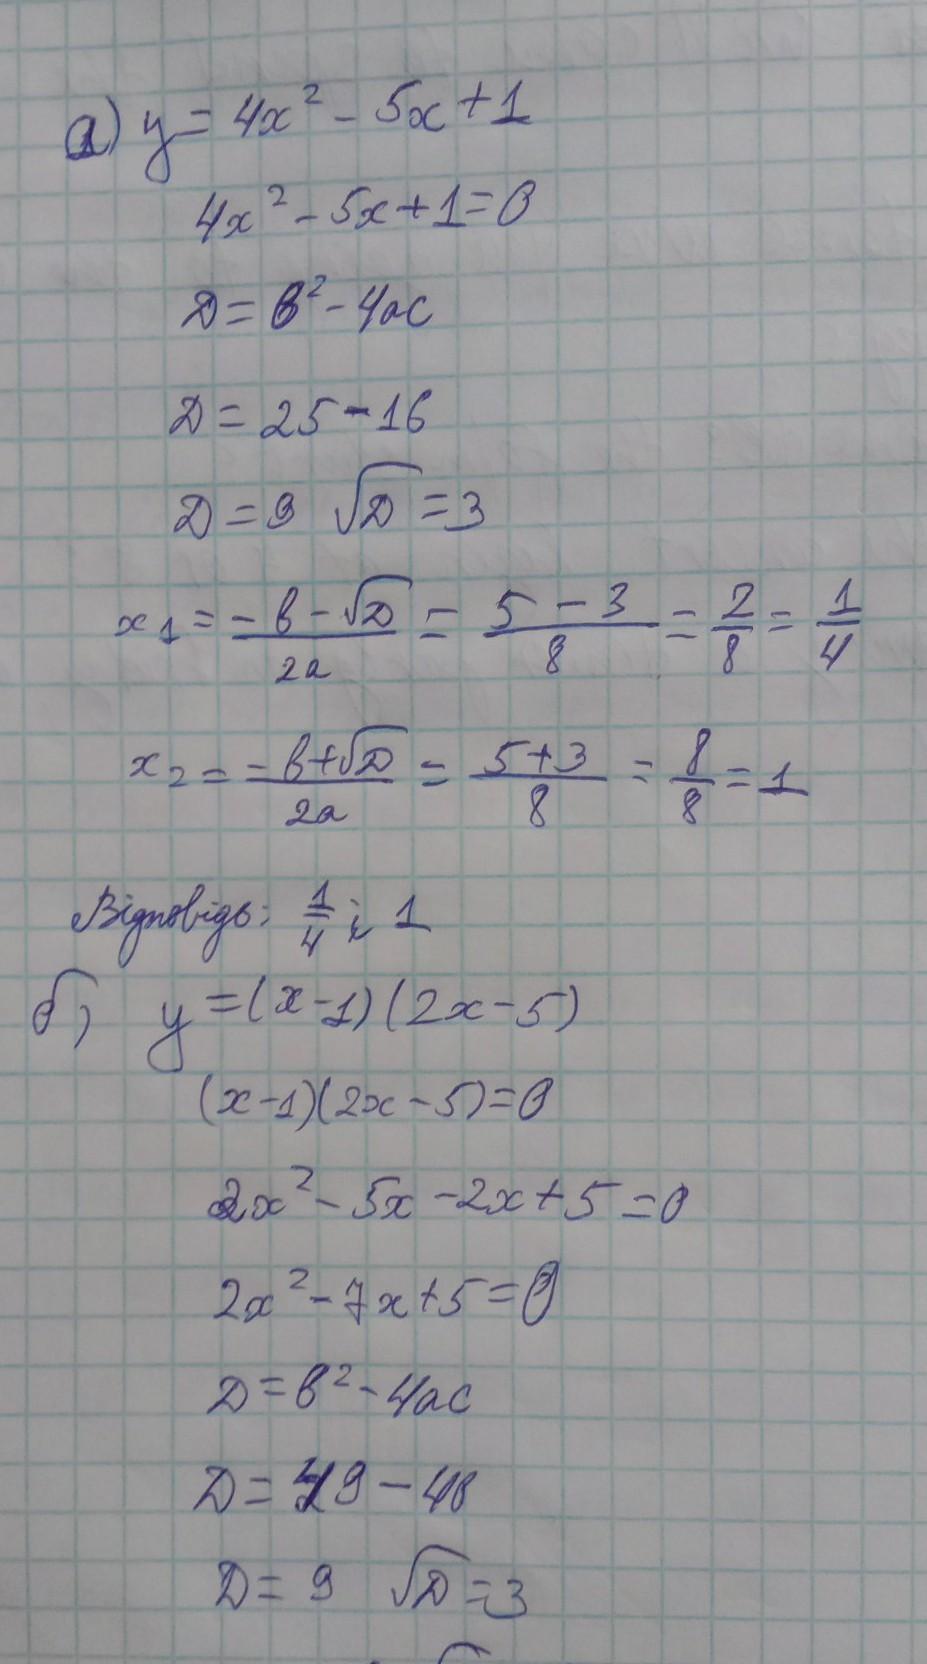 а) y = 4x² - 5x + 1
4x² - 5x + 1 = 0
D = b² - 4ac
D = 25 - 16
D = 9 √D = 3
x₁ = (-b - √D)/2a = (5 - 3)/8 = 2/8 = 1/4
x₂ = (-b + √D)/2a = (5 + 3)/8 = 8/8 = 1
Відповідь: 1/4 і 1
б) y = (x - 1)(2x - 5)
(x - 1)(2x - 5) = 0
2x² - 5x - 2x + 5 = 0
2x² - 7x + 5 = 0
D = b² - 4ac
D = 49 - 40
D = 9 √D = 3